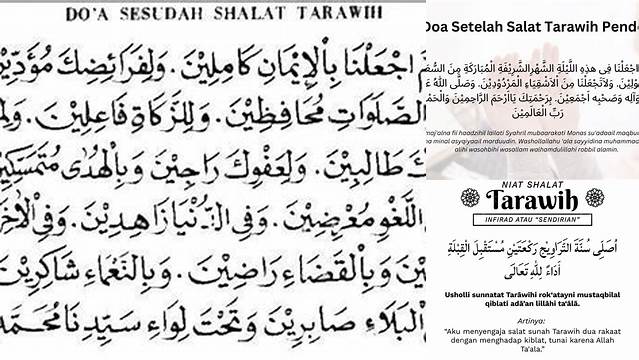 DO'A SESUDAH SHALAT TARAWIH
اجْعَلْنَا بِالْإِيْمَانِ كَامِلِيْنَ. وَلِفَرَائِضِكَ مُؤَدِّيْنَ
الصَّلَوَاتِ مُحَافِظِيْنَ. وَلِلزَّكَاةِ فَاعِلِيْنَ.
طَالِبِيْنَ. وَلِعَفْوِكَ رَاجِيْنَ وَبِالْهُدَى مُتَمَسِّكِيْنَ
اللَّغْوِ مُعْرِضِيْنَ. وَفِى الدُّنْيَا زَاهِدِيْنَ. وَفِى
وَبِالْقَضَاءِ رَاضِيْنَ. وَبِالنَّعْمَاءِ شَاكِرِيْنَ
الْبَلَاءِ صَابِرِيْنَ وَتَحْتَ لِوَاءِ سَيِّدِنَا
Doa Setelah Salat Tarawih
فِى هٰذِهِ اللَّيْلَةِ الشَّهْرِالشَّرِيْفَةِ الْمُبَارَكَةِ مِنَ
وَلَاتَجْعَلْنَا مِنَ الْأَشْقِيَاءِ الْمَرْدُوْدِيْنَ. وَصَلَّى اللهُ
وَاٰلِهِ وَصَحْبِهِ أَجْمَعِيْنَ. بِرَحْمَتِكَ يَاأَرْحَمَ الرَّاحِمِيْنَ
رَبِّ الْعَالَمِيْنَ
fii haadzihil lailati Syahril mubaarakati Monas su'adaail
minal asyqiyaail marduudin. Washollallahu 'ala sayyidina
alihi wasohbihi wasallam walhamdulillahi robbil alamin.
NIAT SHALAT
Tarawih
INFIRAD ATAU "SENDIRIAN"
أُصَلِّى سُنَّةَ التَّرَاوِيْحِ رَكْعَتَيْنِ مُسْتَقْبِلَ الْقِبْلَةِ
أَدَاءً لِلّٰهِ تَعَالَى
Usholli sunnatat Tarāwīhi rok'atayni mustaqbilal
qiblati adā'an lillāhi ta'ālā.
Artinya:
"Aku menyengaja salat sunah Tarawih dua rakaat
dengan menghadap kiblat, tunai karena Allah
Ta'ala."